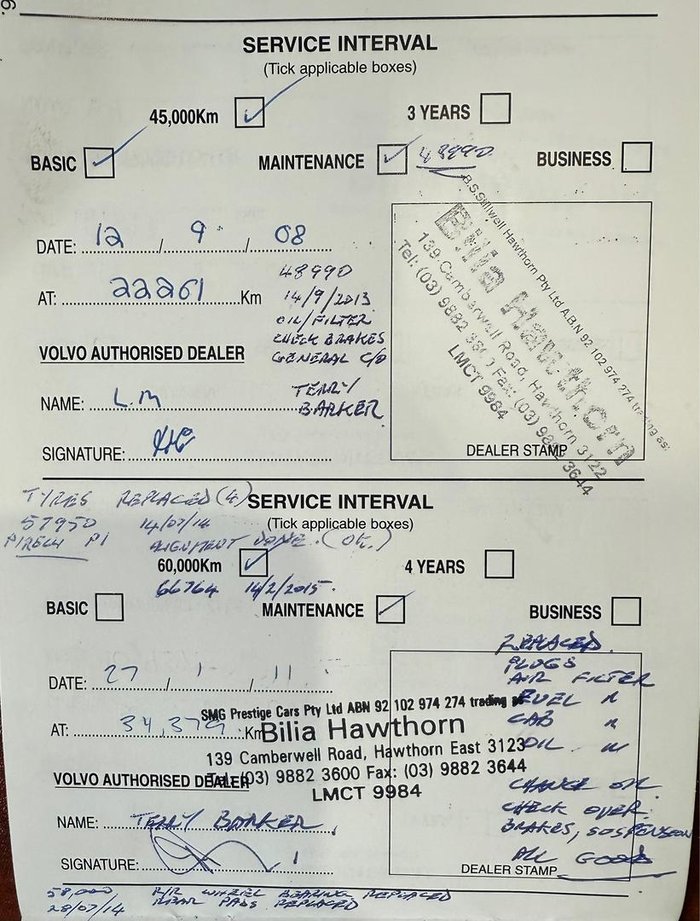 SERVICE INTERVAL
(Tick applicable boxes)
45,000Km 3 YEARS
BASIC MAINTENANCE 48990 BUSINESS
DATE: 12 / 9 / 08
AT: 22261 Km
48990
14/9/2013
OIL/FILTER
CHECK BRAKES
GENERAL C/O
TERRY
BARKER
VOLVO AUTHORISED DEALER
NAME: L.M
SIGNATURE:
B.S.Stillwell Hawthorn Pty Ltd ABN 92 102 974 274 trading as:
Bilia Hawthorn
139 Camberwell Road, Hawthorn 3122
Tel: (03) 9882 Fax: (03) 9882 3644
LMCT 9984
DEALER STAMP
TYRES REPLACED (4)
57950 14/07/14
PIRELLI P1 ALIGNMENT DONE. (OK.)
SERVICE INTERVAL
(Tick applicable boxes)
60,000Km 4 YEARS
66764 14/2/2015.
BASIC MAINTENANCE BUSINESS
DATE: 27 / 1 / 11
AT: 34,379 Km
SMG Prestige Cars Pty Ltd ABN 92 102 974 274 trading as
Bilia Hawthorn
139 Camberwell Road, Hawthorn East 3123
Tel: (03) 9882 3600 Fax: (03) 9882 3644
LMCT 9984
VOLVO AUTHORISED DEALER
NAME: TERRY BARKER
SIGNATURE:
REPLACED
PLUGS
AIR FILTER
FUEL "
CAB "
OIL "
CHANGE OIL
CHECK OVER
BRAKES, SUSPENSION
ALL GOOD
DEALER STAMP
58,000 R/R WHEEL BEARING REPLACED
28/07/14 REAR PADS REPLACED